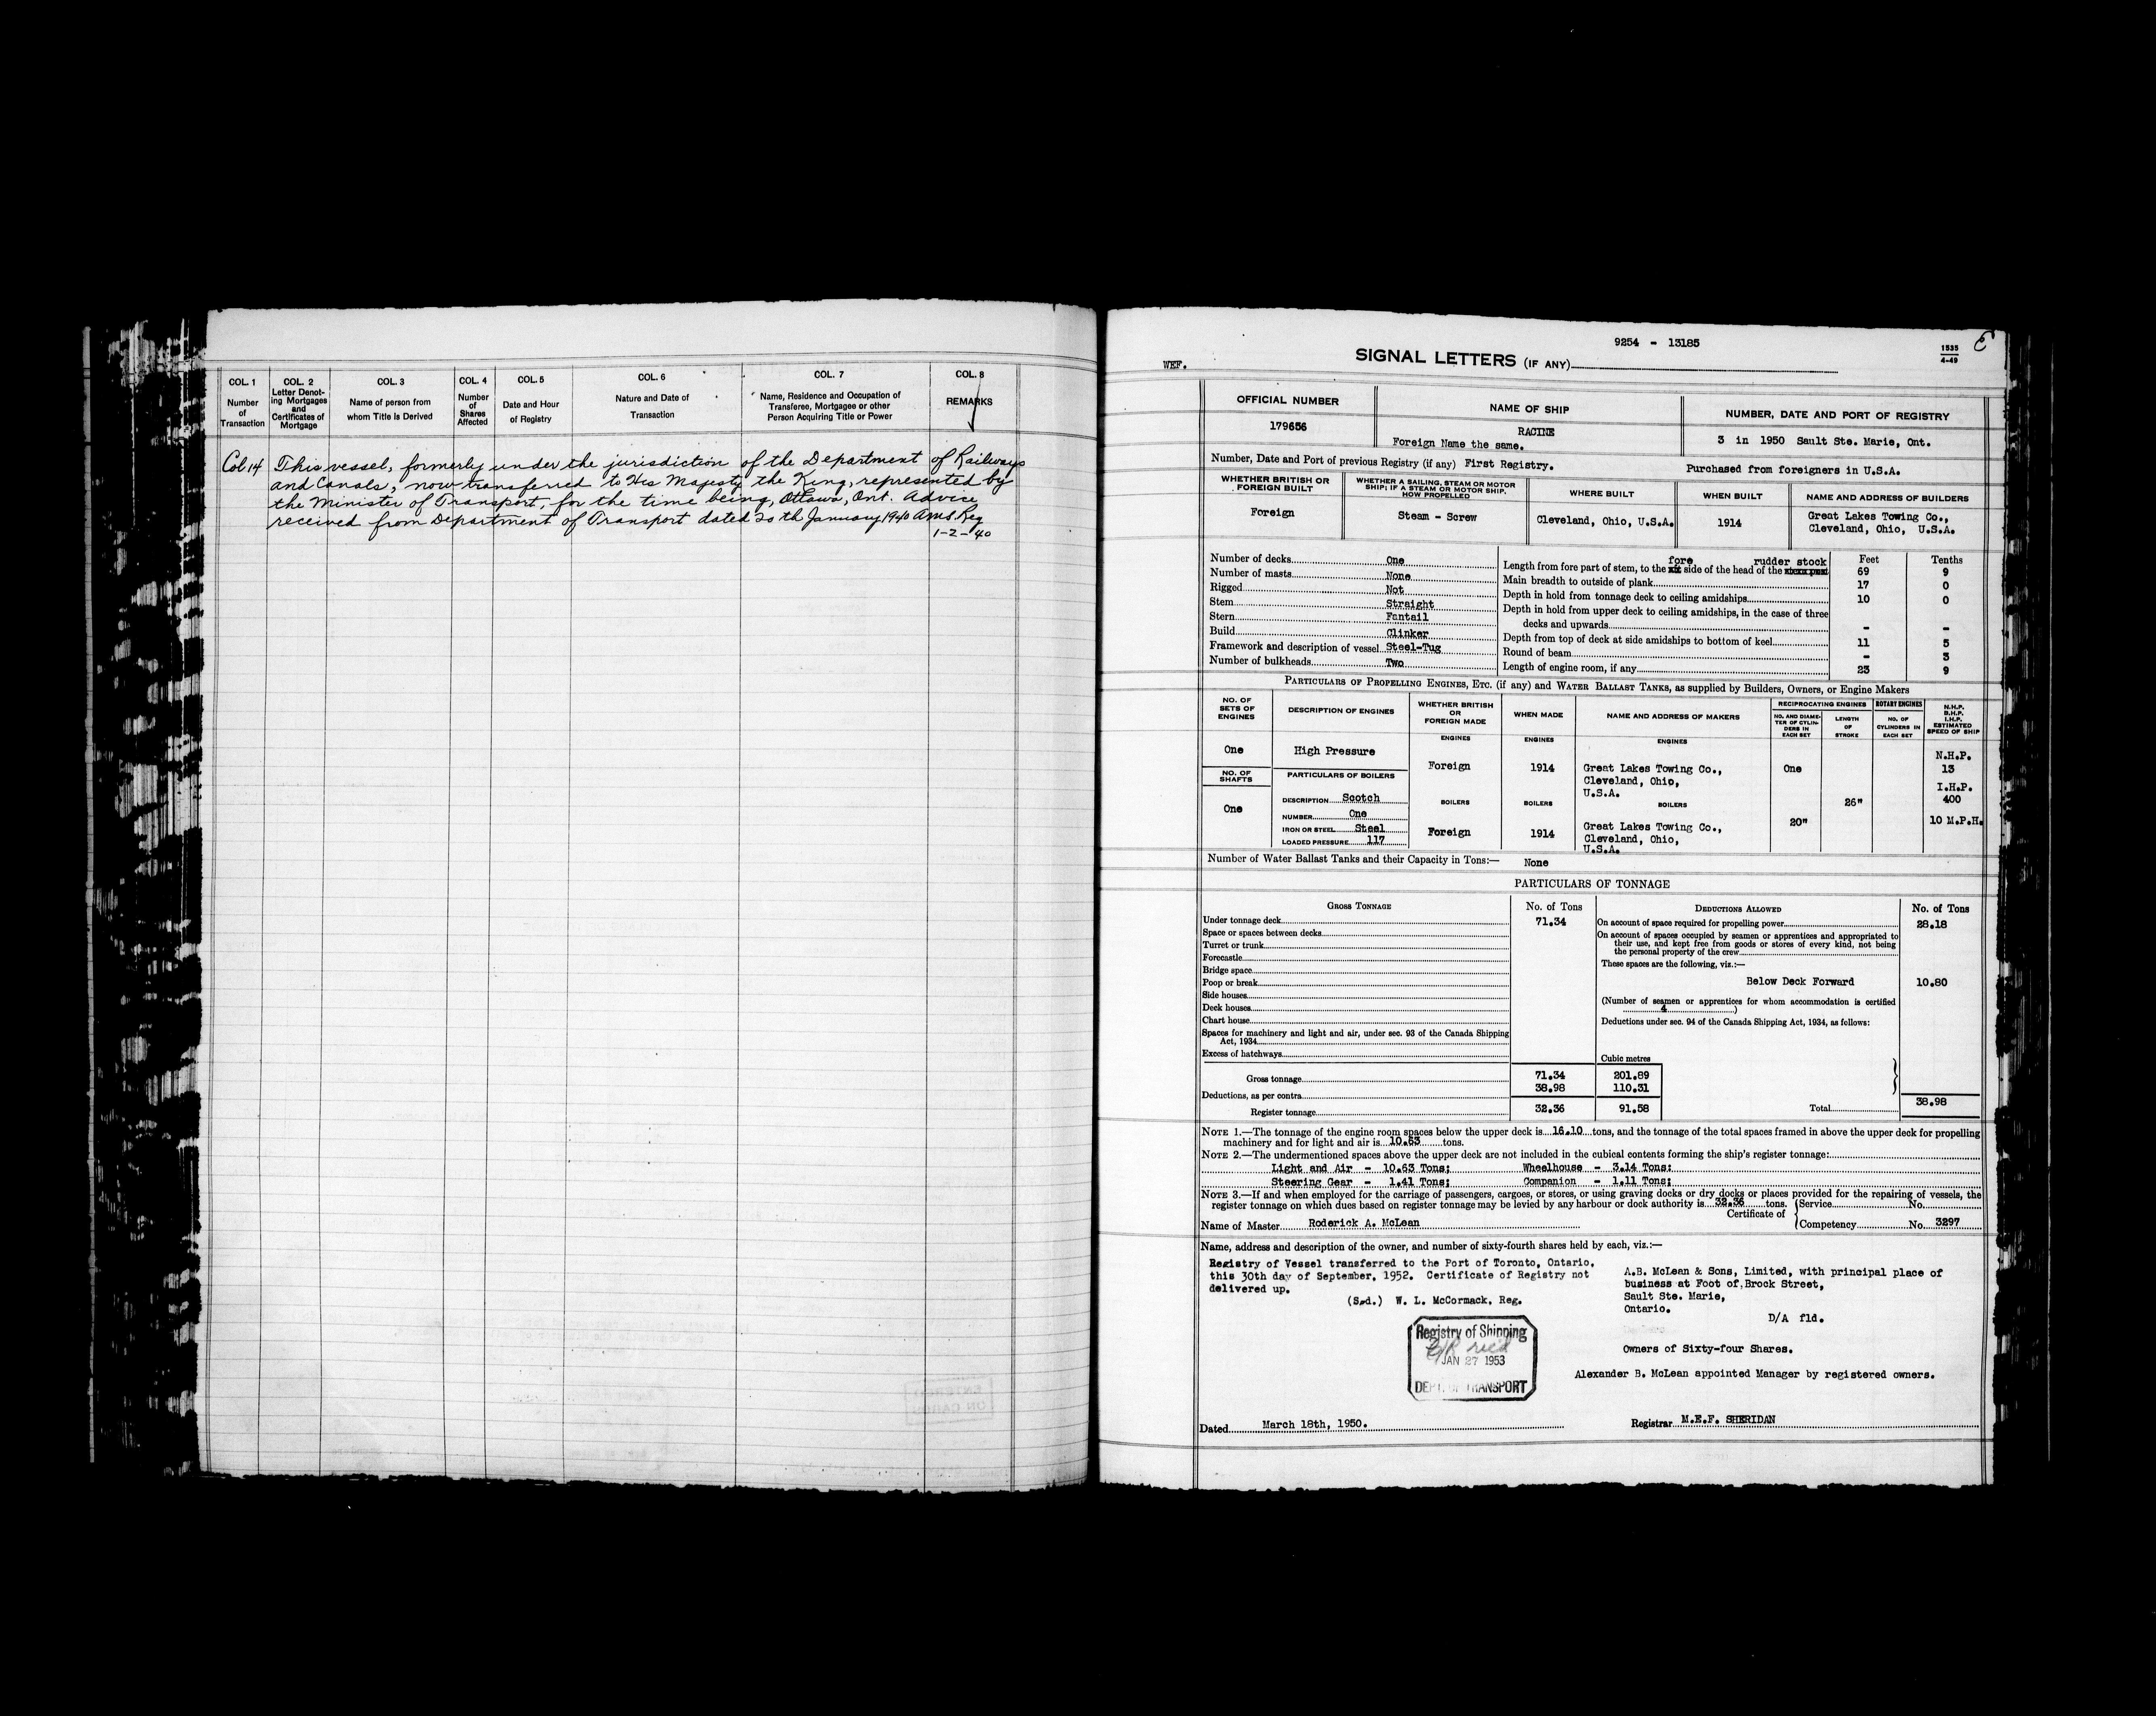 COL. 1
Number
of
Transaction
COL. 2
Letter Denot-
ing Mortgages
and
Certificates of
Mortgage
COL. 3
Name of person from
whom Title is Derived
COL. 4
Number
of
Shares
Affected
COL. 5
Date and Hour
of Registry
COL. 6
Nature and Date of
Transaction
COL. 7
Name, Residence and Occupation of
Transferee, Mortgagee or other
Person Acquiring Title or Power
COL. 8
REMARKS
Col 14 This vessel, formerly under the jurisdiction of the Department of Railways
and Canals, now transferred to His Majesty the King, represented by
the Minister of Transport, for the time being, Ottawa, Ont. Advice
received from Department of Transport dated 20th January 1940 AMS. Reg
1-2-40
9254 - 13185
WEF.
SIGNAL LETTERS (IF ANY)
1535
4-49
OFFICIAL NUMBER
179656
NAME OF SHIP
RACINE
Foreign Name the same.
NUMBER, DATE AND PORT OF REGISTRY
3 in 1950 Sault Ste. Marie, Ont.
Number, Date and Port of previous Registry (if any) First Registry.
Purchased from foreigners in U.S.A.
WHETHER BRITISH OR
FOREIGN BUILT
Foreign
WHETHER A SAILING, STEAM OR MOTOR
SHIP; IF A STEAM OR MOTOR SHIP,
HOW PROPELLED
Steam - Screw
WHERE BUILT
Cleveland, Ohio, U.S.A.
WHEN BUILT
1914
NAME AND ADDRESS OF BUILDERS
Great Lakes Towing Co.,
Cleveland, Ohio, U.S.A.
Number of decks One
Number of masts None
Rigged Not
Stem Straight
Stern Fantail
Build Clinker
Framework and description of vessel Steel-Tug
Number of bulkheads Two
Feet Tenths
fore rudder stock
Length from fore part of stem, to the side of the head of the 69 9
Main breadth to outside of plank 17 0
Depth in hold from tonnage deck to ceiling amidships 10 0
Depth in hold from upper deck to ceiling amidships, in the case of three
decks and upwards - -
Depth from top of deck at side amidships to bottom of keel 11 5
Round of beam - 3
Length of engine room, if any 23 9
PARTICULARS OF PROPELLING ENGINES, ETC. (if any) and WATER BALLAST TANKS, as supplied by Builders, Owners, or Engine Makers
NO. OF
SETS OF
ENGINES
One
NO. OF
SHAFTS
One
DESCRIPTION OF ENGINES
High Pressure
PARTICULARS OF BOILERS
DESCRIPTION Scotch
NUMBER One
IRON OR STEEL Steel
LOADED PRESSURE 117
WHETHER BRITISH
OR
FOREIGN MADE
ENGINES
Foreign
BOILERS
Foreign
WHEN MADE
ENGINES
1914
BOILERS
1914
NAME AND ADDRESS OF MAKERS
ENGINES
Great Lakes Towing Co.,
Cleveland, Ohio,
U.S.A.
BOILERS
Great Lakes Towing Co.,
Cleveland, Ohio,
U.S.A.
RECIPROCATING ENGINES
NO. AND DIAME-
TER OF CYLIN-
DERS IN
EACH SET
One
20"
LENGTH
OF
STROKE
26"
ROTARY ENGINES
NO. OF
CYLINDERS IN
EACH SET
N.H.P.
B.H.P.
I.H.P.
ESTIMATED
SPEED OF SHIP
N.H.P.
13
I.H.P.
400
10 M.P.H.
Number of Water Ballast Tanks and their Capacity in Tons:— None
PARTICULARS OF TONNAGE
GROSS TONNAGE No. of Tons
Under tonnage deck 71.34
Space or spaces between decks
Turret or trunk
Forecastle
Bridge space
Poop or break
Side houses
Deck houses
Chart house
Spaces for machinery and light and air, under sec. 93 of the Canada Shipping
Act, 1934
Excess of hatchways
Cubic metres
Gross tonnage 71.34 201.89
Deductions, as per contra 38.98 110.31
Register tonnage 32.36 91.58
DEDUCTIONS ALLOWED No. of Tons
On account of space required for propelling power 28.18
On account of spaces occupied by seamen or apprentices and appropriated to
their use, and kept free from goods or stores of every kind, not being
the personal property of the crew
These spaces are the following, viz.:—
Below Deck Forward 10.80
(Number of seamen or apprentices for whom accommodation is certified
4 )
Deductions under sec. 94 of the Canada Shipping Act, 1934, as follows:
Total 38.98
NOTE 1.—The tonnage of the engine room spaces below the upper deck is 16.10 tons, and the tonnage of the total spaces framed in above the upper deck for propelling
machinery and for light and air is 10.63 tons.
NOTE 2.—The undermentioned spaces above the upper deck are not included in the cubical contents forming the ship's register tonnage:
Light and Air - 10.63 Tons; Wheelhouse - 3.14 Tons;
Steering Gear - 1.41 Tons; Companion - 1.11 Tons;
NOTE 3.—If and when employed for the carriage of passengers, cargoes, or stores, or using graving docks or dry docks or places provided for the repairing of vessels, the
register tonnage on which dues based on register tonnage may be levied by any harbour or dock authority is 32.36 tons.
Name of Master Roderick A. McLean
Certificate of
Service No.
Competency No. 3297
Name, address and description of the owner, and number of sixty-fourth shares held by each, viz.:—
Registry of Vessel transferred to the Port of Toronto, Ontario,
this 30th day of September, 1952. Certificate of Registry not
delivered up.
(Sgd.) W. L. McCormack, Reg.
A.B. McLean & Sons, Limited, with principal place of
business at Foot of Brock Street,
Sault Ste. Marie,
Ontario.
D/A fld.
Owners of Sixty-four Shares.
Alexander B. McLean appointed Manager by registered owners.
Registry of Shipping
JAN 27 1953
DEPT. OF TRANSPORT
Dated March 18th, 1950.
Registrar M.E.F. SHERIDAN